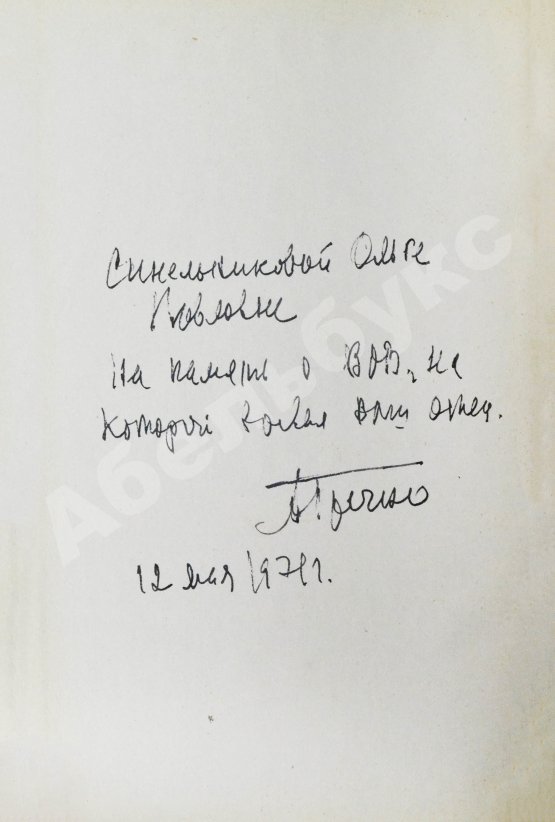 Синельниковой Ольге
Павловне
На память о ВОВ, на
которой воевал ваш отец.
АГречко
12 мая 1971г.
Абельбукс